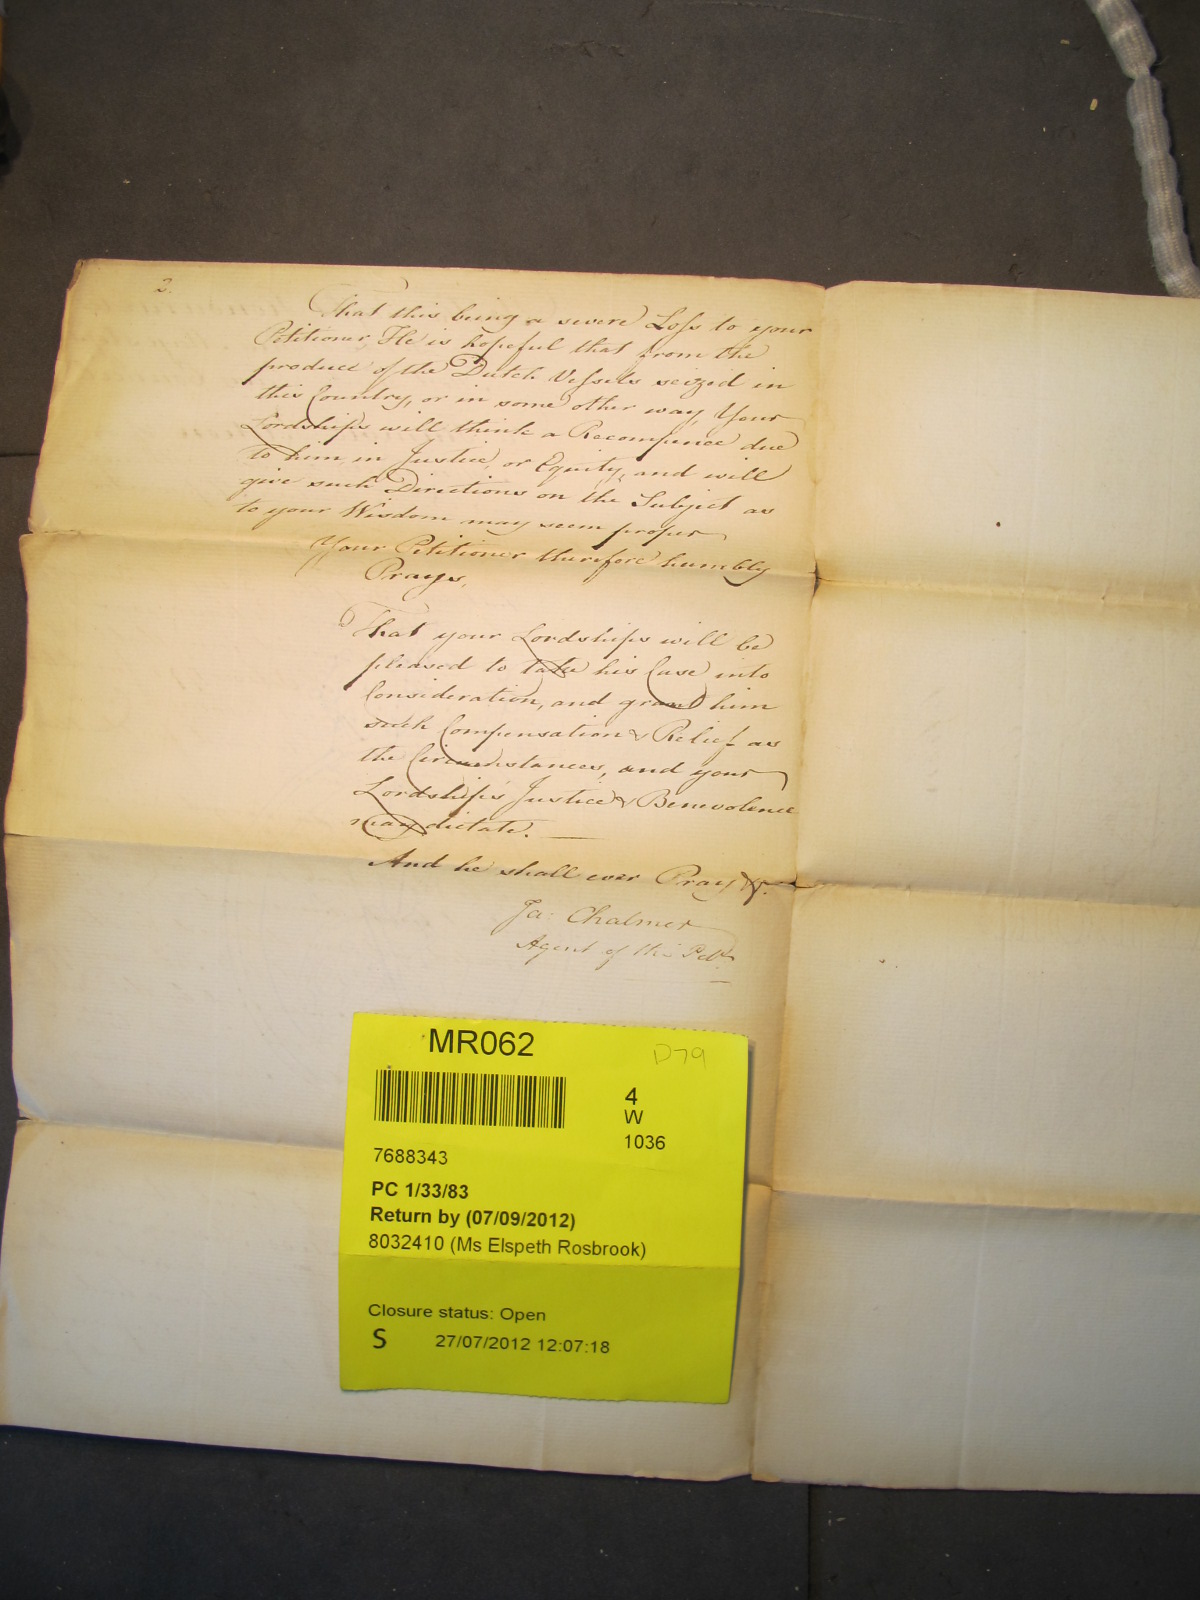 2.
That this being a severe Loss to your
Petitioner, He is hopeful that from the
produce of the Dutch Vessels seized in
this Country, or in some other way, Your
Lordships will think a Recompence due
to him, in Justice, or Equity, and will
give such Directions on the Subject as
to your Wisdom may seem proper
Your Petitioner therefore humbly
Prays,
That your Lordships will be
pleased to take his Case into
Consideration, and grant him
such Compensation & Relief as
the Circumstances, and your
Lordship's Justice & Benevolence
may dictate.
And he shall ever Pray &c.
Ja: Chalmer
Agent of the Petr.
MR062
D79
4
W
1036
7688343
PC 1/33/83
Return by (07/09/2012)
8032410 (Ms Elspeth Rosbrook)
Closure status: Open
S 27/07/2012 12:07:18